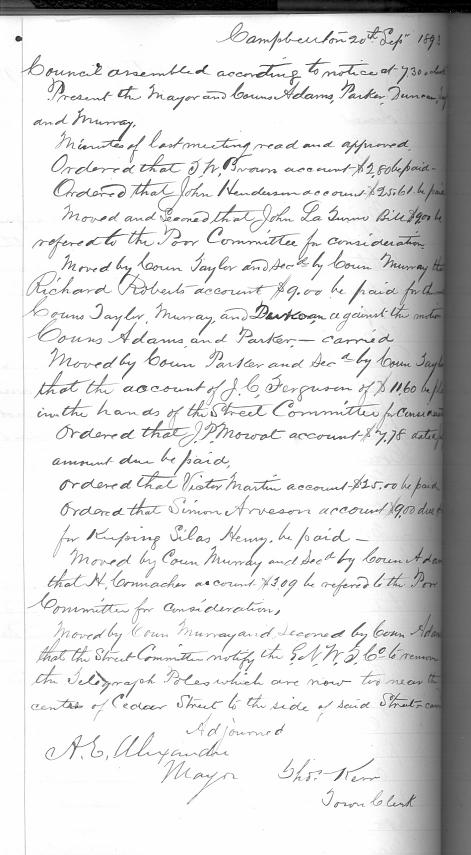 Campbellton 20th Sepr 189
Council assembled according to notice at 7.30 o'clock
Present the Mayor and Couns Adams, Parker, Duncan,
and Murray.
Minutes of last meeting read and approved.
Ordered that T. W. Brown account $2.80 be paid -
Ordered that John Henderson account $25.61 be paid
Moved and Seconed that John La Bill $9.00 be
refered to the Poor Committee for consideration.
Moved by Coun Taylor and Secd by Coun Murray tha
Richard Roberts account $9.00 be paid for the
Couns Taylor, Murray, and Duncan against the motion
Couns Adams and Parker, - carried
Moved by Coun Parker and Secd by Coun Taylo
that the account of J. C. Ferguson of $11.60 be pla
in the hands of the Street Committee for
Ordered that J. P. Mowat account $7.78
amount due be paid,
Ordered that Victor Martin account $25.00 be paid
Ordered that Simon Arveson account $9.00 due
for Keeping Silas Henry, be paid -
Moved by Coun Murray and Secd by Coun Adam
that H. account $3.09 be refered to the Poor
Committee for consideration,
Moved by Coun Murray and seconed by Coun Adam
that the Street Committee notify the G N W T, Co to remove
the Telegraph Poles which are now too near the
center of Cedar Street to the side of said Street - carr
Adjourned
A. E. Alexander
Mayor Thos. Kerr
Town Clerk